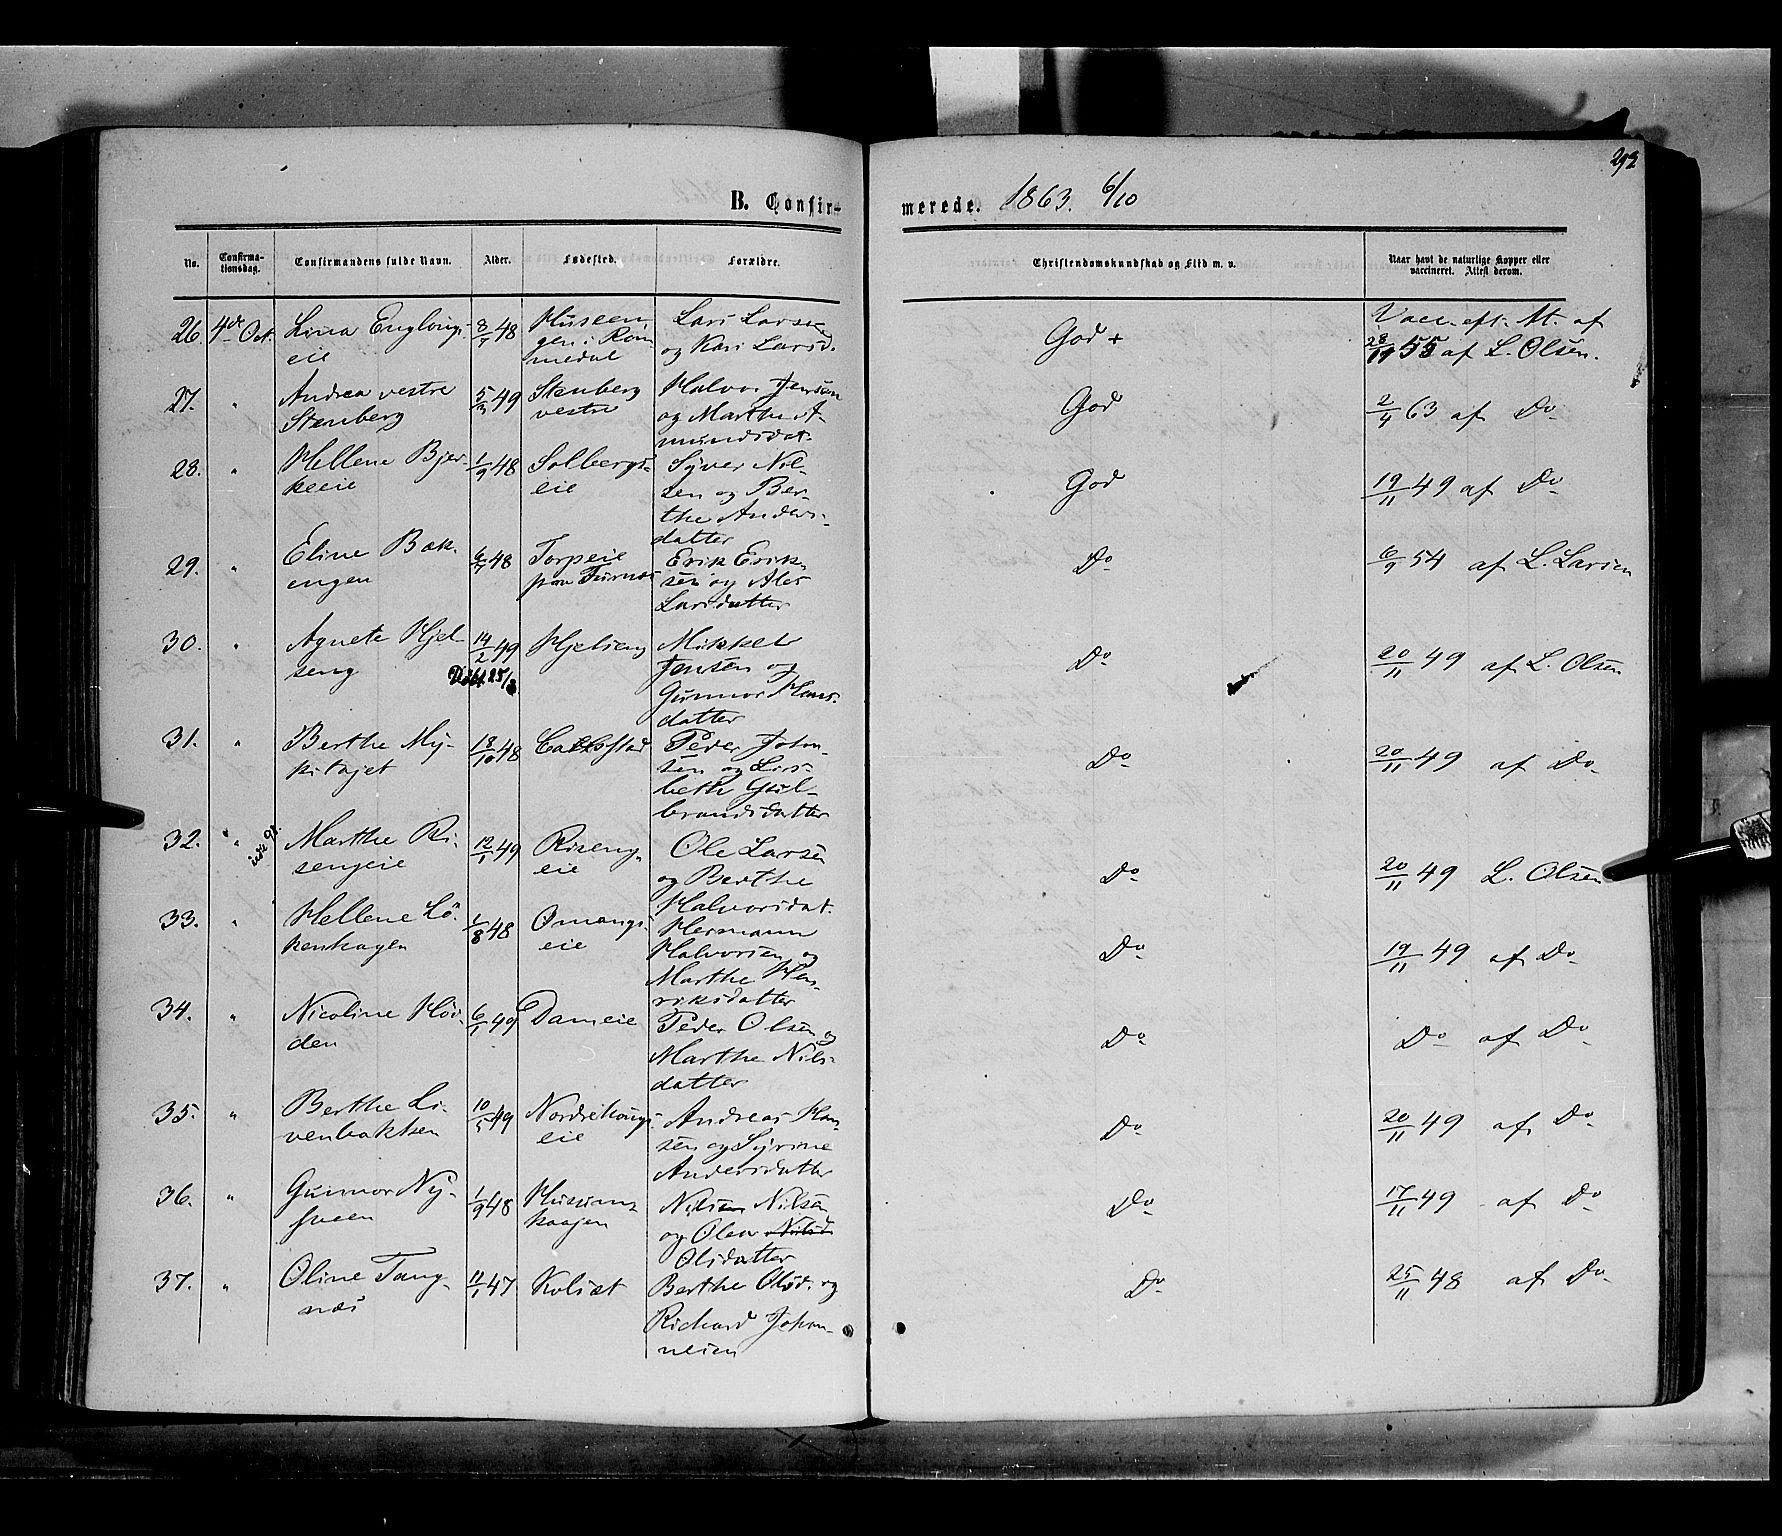 292
B. Confir-
merede. 1863. 6/10
No.
Confirma-
tionsdag.
Confirmandens fulde Navn.
Alder.
Fødested.
Forældre.
Christendomskundskab og Flid m. v.
Naar havt de naturlige Kopper eller
vaccineret. Attest derom.
26. 4de Oct.
eie
8/7 48
medal
Lars Larsen
og Kari Larsd.
God +
Vacc. eft. At. af
55 af L. Olsen.
27. "
Andrea vestre
Stenberg
5/3 49
Stenberg
vestre
Halvor Jensen
og Marthe A-
mundsdat.
God
2/4 63 af Do
28. "
Hellene Bjer-
keeie
1/9 48
Solbergs-
eie
Syver Nil-
sen og Ber-
the Anders-
datter
God
19/11 49 af Do
29. "
Eline Bæk-
engen
6/7 48
Torpeie
paa Furnæs
Erik Erik-
sen og Ales
Larsdatter
Do
6/9 54 af L. Larsen
30. "
Agnete Hjel-
seng
14/2 49
Døbt 25/3
Hjelseng
Mikkel
Jensen og
Gunnor Hans-
datter
Do
20/11 49 af L. Olsen
31. "
Berthe My-
18/10 48
Peder John-
sen og Lis-
beth Gul-
brandsdatter
Do
20/11 49 af Do
32. "
Marthe Ri-
sengeie
12/1 49
Riseng-
eie
Ole Larsen
og Berthe
Halvorsdat.
Do
20/11 49 L. Olsen
33. "
Hellene Lö-
kenhagen
1/8 48
Omangs-
eie
Hermann
Halvorsen og
Marthe Hen-
riksdatter
Do
19/11 49 af Do
34. "
Nicoline Höv-
den
6/1 49
Dameie
Peder Olsen og
Marthe Nils-
datter
Do
Do af Do
35. "
Berthe Li-
venbakken
10/5 49
eie
Andreas Han-
sen og Syrine
Andersdatter
Do
20/11 49 af Do
36. "
Gunnor Ny-
sveen
1/9 48
Husum-
haajen
Nilsen Nilsen
og Olea Nilsd
Olsdatter
Do
17/11 49 af Do
37. "
Oline Tang-
næs
11/1 47
Kolset
Berthe Olsd. og
Richard Johan-
nesen
Do
25/11 48 af Do